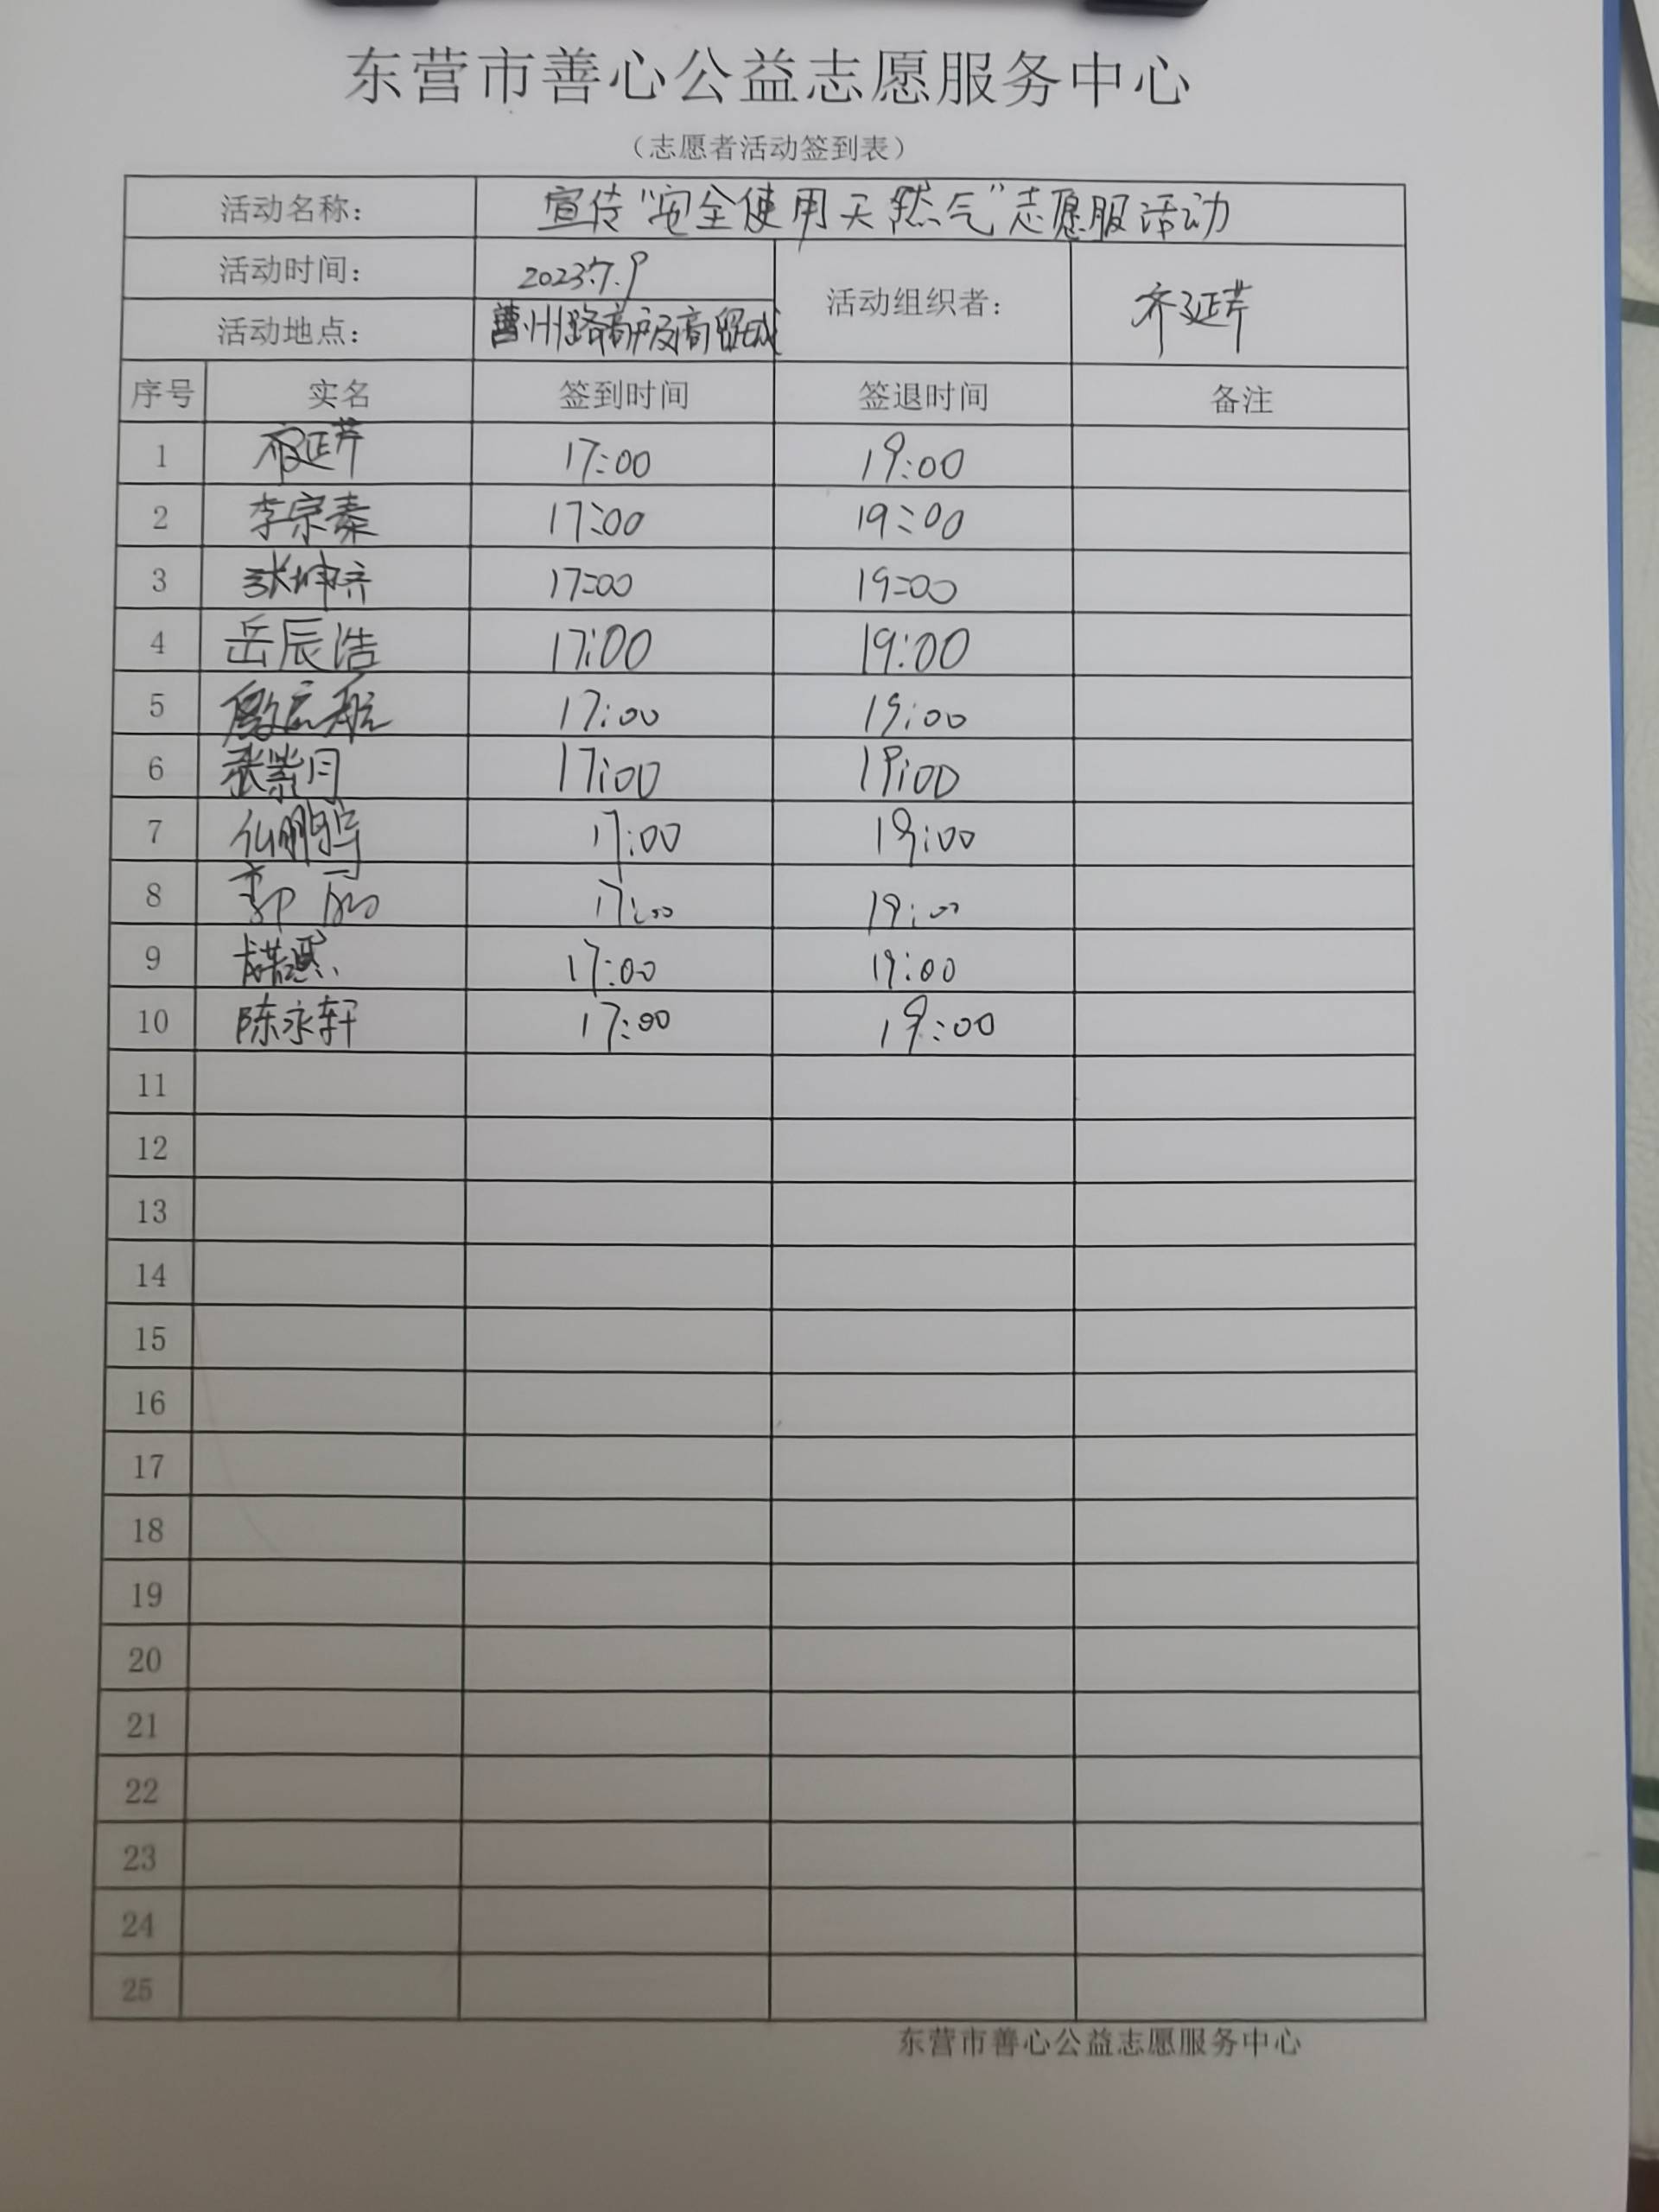 东营市善心公益志愿服务中心
（志愿者活动签到表）
活动名称： 宣传“安全使用天然气”志愿服活动
活动时间： 2023.7.9
活动组织者： 齐延芹
活动地点： 曹州路
序号 实名 签到时间 签退时间 备注
1 延芹 17:00 19:00
2 李宗秦 17:00 19:00
3 张坤齐 17:00 19:00
4 岳辰浩 17:00 19:00
5 17:00 19:00
6 张紫月 17:00 19:00
7 仙鹏 17:00 19:00
8 郭 17:00 19:00
9 17:00 19:00
10 陈永轩 17:00 19:00
11
12
13
14
15
16
17
18
19
20
21
22
23
24
25
东营市善心公益志愿服务中心